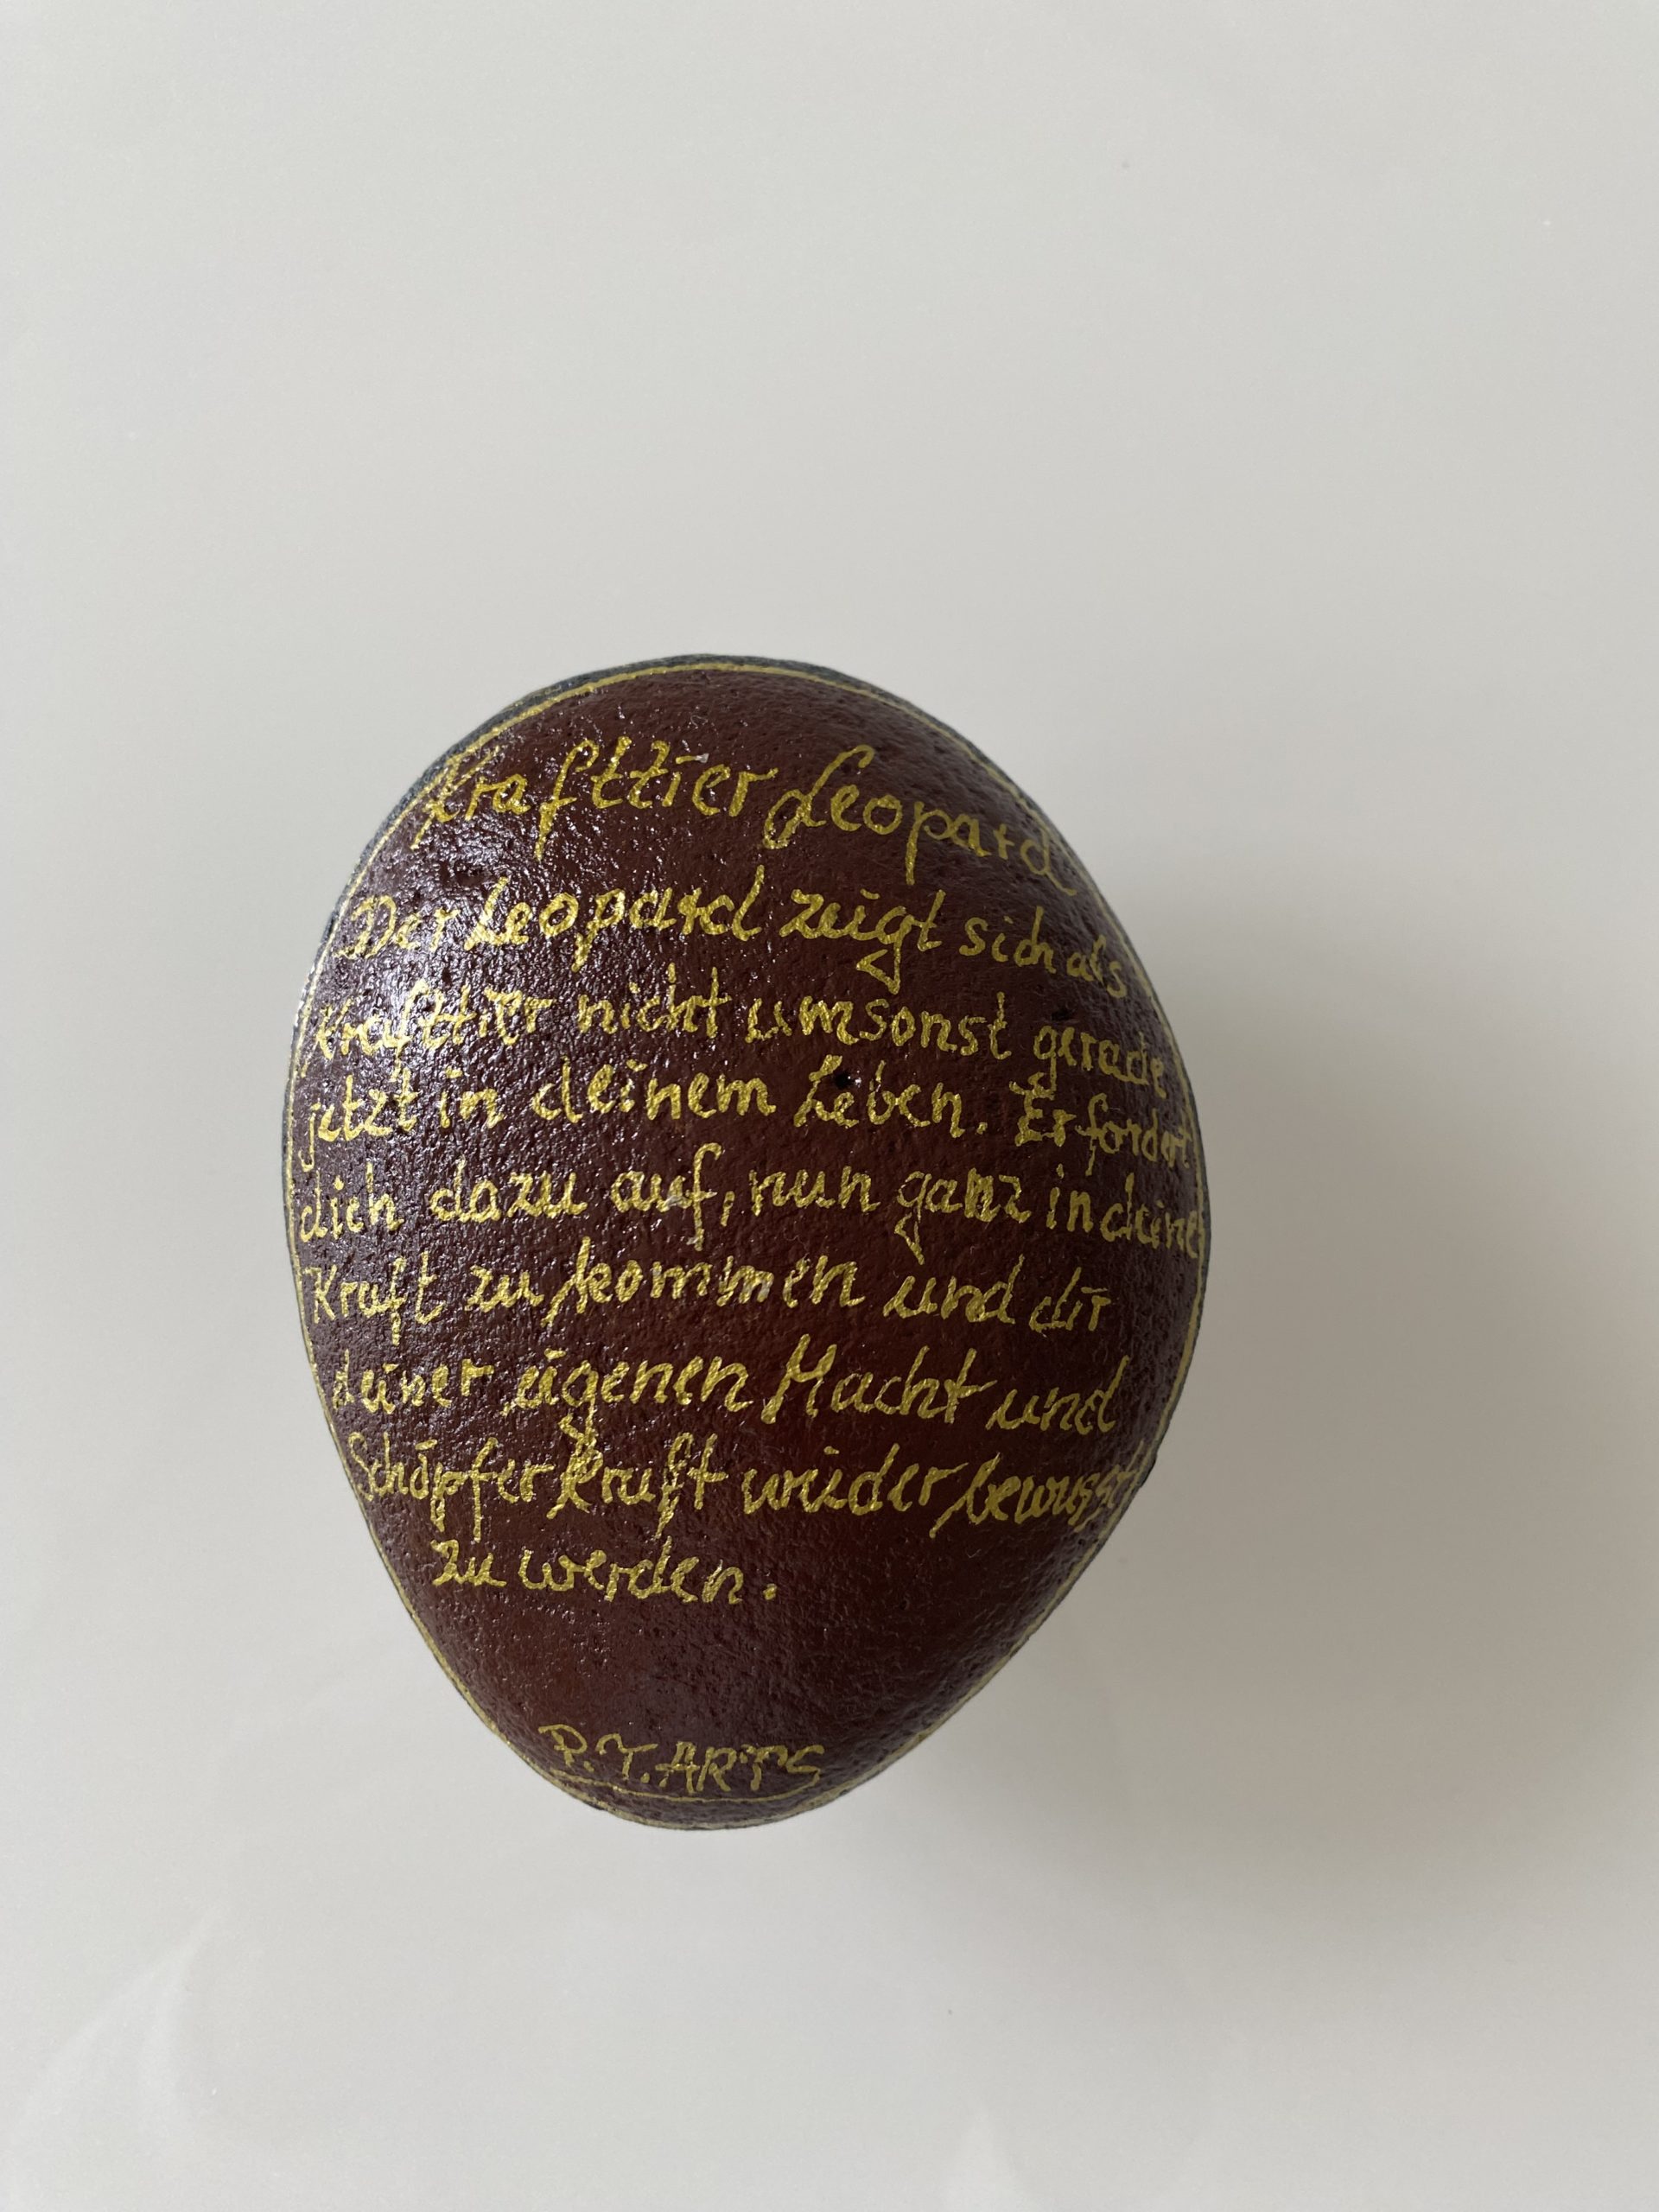 Krafttier Leopard
Der Leopard zeigt sich als
Krafttier nicht umsonst gerade
jetzt in deinem Leben. Er fordert
dich dazu auf, nun ganz in deine
Kraft zu kommen und dir
deiner eigenen Macht und
Schöpferkraft wieder bewusst
zu werden.
P.T.ARTS